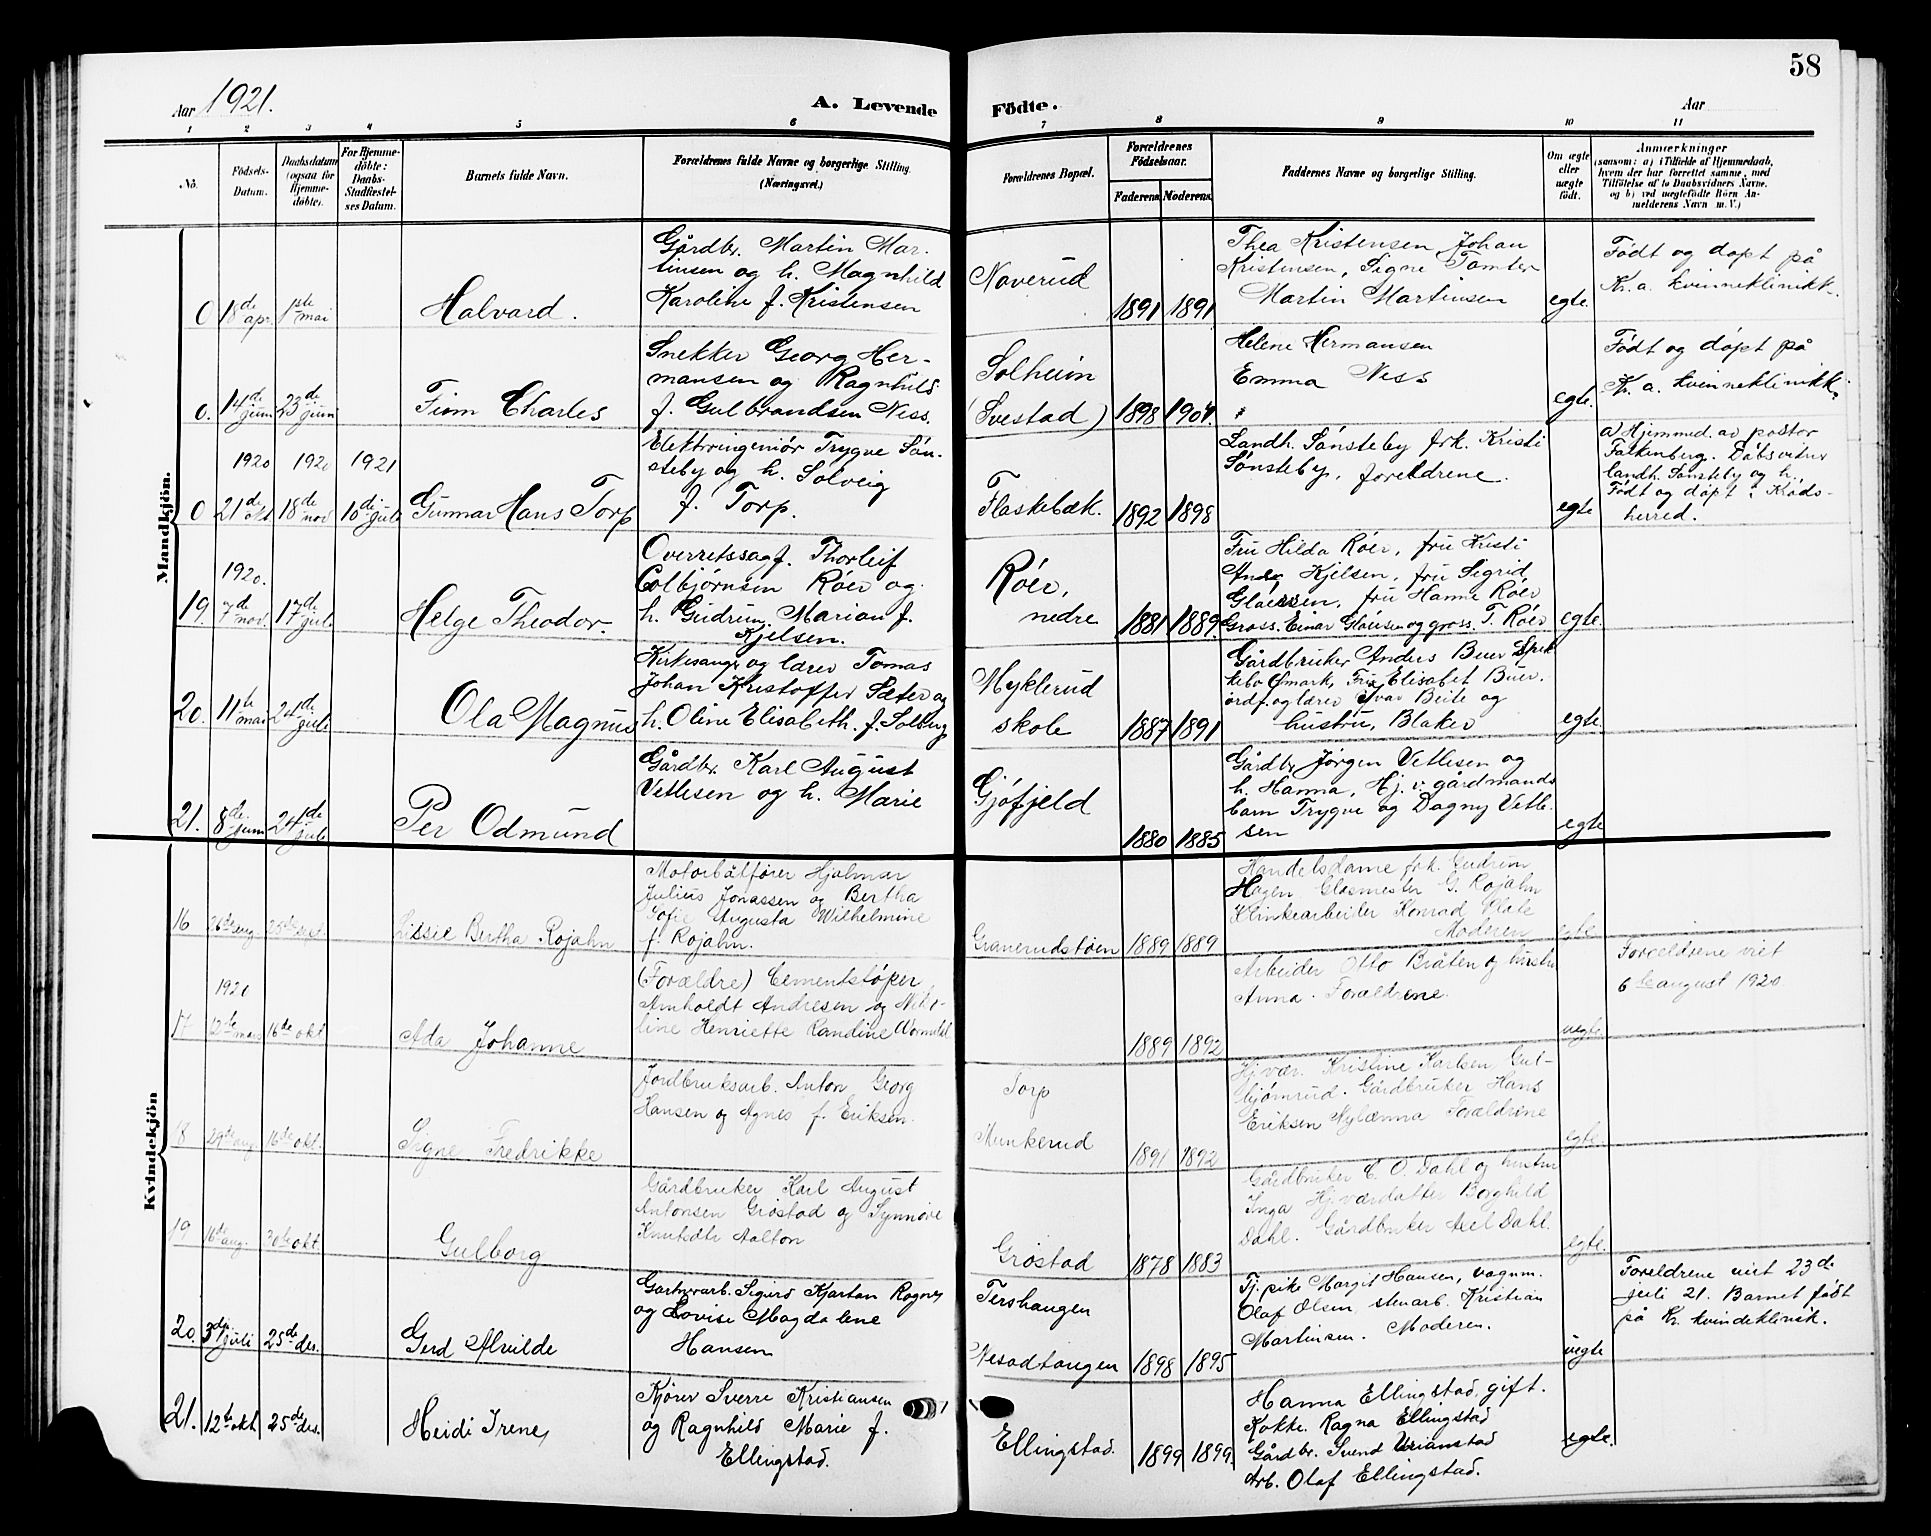 58
Aar 1921.
A. Levende Fødte.
Aar
1 2 3 4 5 6 7 8 9 10 11
No.
Fødsels-Datum.
Daabsdatum (ogsaa for Hjemmedøbte).
For Hjemmedøbte: Daabs-Stadfæstelses Datum.
Barnets fulde Navn.
Forældrenes fulde Navne og borgerlige Stilling. (Næringsvei.)
Forældrenes Bopæl.
Forældrenes Fødselsaar.
Faderens. Moderens.
Faddernes Navne og borgerlige Stilling.
Om ægte eller uægte født.
Anmærkninger (saasom: a) i Tilfælde af Hjemmedaab, hvem der har forrettet samme, med Tilføielse af to Daabsvidners Navne, og b) ved uægtefødte Børn Anmelderens Navn m. V.)
Mandkjøn.
0 18de apr. 1ste mai
Halvard.
Gårdbr. Martin Mar-
tinsen og h. Magnhild
Karoline f. Kristensen
Noverud
1891 1891
Thea Kristensen Johan
Kristensen, Signe Tomter
Martin Martinsen
egte.
Født og døpt på
Kr.a. kvinneklinikk.
0. 14de juni 23de juni
Finn Charles
Snekker Georg Her-
mansen og Ragnhild
f. Gulbrandsen Ness.
Solheim
(Svestad)
1898 1901.
Helene Hermansen
Emma Ness
egte.
Født og døpt på
Kr. a. kvinneklinikk.
1920 1920 1921
0 21de okt 18de nov 10de juli
Gunnar Hans Torp
Elektroingeniør Trygve Søn-
steby og h. Solveig
f. Torp.
Flaskebæk.
1892 1898
Landh. Sønsteby frk. Kristi
Sønsteby, foreldrene.
egte
a) Hjemmed. av pastor
Falkenberg. Dåbsvidner
landh. Sønsteby og h.
Født og døpt i Kråds-
herred.
1920.
19. 7de nov. 17de juli
Helge Theodor.
Overretssagf. Thorleif
Colbjørnsen Røer og
h. Gudrun Marian f.
Kjelsen.
Røer,
nedre
1881 1889.
Fru Hilda Røer, fru Kristi
Kjelsen, fru Sigrid
fru Hanne Røer
Gross. Einar og gross. T. Røer
egte.
20. 11te mai 24de juli
Ola Magnus
Kirkesanger og lærer Tomas
Johan Kristoffer Sæter og
h. Oline Elisabeth. f. Solberg
Myklerud
skole
1887 1891
Gårdbruker Anders Buer
Fru Elisabet Buer.
ordf. og lærer Ivar Beite og
hustru, Blaker
egte.
21. 8de juni 24de juli
Per Odmund
Gårdbr. Karl August
Vetlesen og h. Marie
Gjøfjeld
1880 1885
Gårdbr Jørgen Vetlesen og
h. Hanna, Hj. v. gårdmands
barn Trygve og Dagny Vetle-
sen
egte
Kvindekjøn
16 26de aug. 25de sept.
Lissie Bertha Rojahn
Motorbåtfører Hjalmar
Julius Jonassen og Bertha
Sofie Augusta Wilhelmine
f. Rojahn.
Granerudstøen
1889 1889
Handelsdame frk. Gudrun
Hagen, Glasmester G. Rojahn
Klinkearbeiter Konrad Plate
Moderen
egte.
1920
17 12te mars 16de okt
Ada Johanne
(Forældre) Cementstøper
Arnholdt Andresen og
line Henriette Randine
1889 1892
Arbeider Otto Bråten og hustru
Anna. Forældrene.
uegte.
Forældrene viet
6te august 1920
18 29de aug. 16de okt.
Signe Fredrikke
Jordbruksarb. Anton Georg
Hansen og Agnes f. Eriksen.
Torp
Munkerud
1891 1892
Hj.vær. Kristine Karlsen Gul-
bjørnrud. Gårdbruker Hans
Eriksen Forældrene
egte.
19 16de aug. 30te okt.
Gulborg
Gårdbruker Karl August
Antonsen Grøstad og Synnøve
Knutsdtr Aalton
Grøstad
1878 1883
Gårdbruker C. O. Dahl og hustru
Inga Hj.værdatter Borghild
Dahl. Gårdbruker Axel Dahl.
egte.
20. juli 25de des.
Gerd Alvilde
Gartnerarb. Sigurd Kjartan Rognes
og Lovise Magdalene
Hansen
Tershaugen
Nesodtangen
1898 1895
Tj. pike Margit Hansen, vognm.
Olaf Olsen, stenarb. Kristian
Martinsen. Moderen.
uegte
Foreldrene viet 23de
juli 21. Barnet født
på Kr. kvindeklinik.
21. 12te okt 25de des.
Heidi Irene,
Kjører Sverre Kristiansen
og Ragnhild Marie f.
Ellingstad.
Ellingstad.
1899 1899
Hanna Ellingstad, gift.
Kokke. Ragna Ellingstad
Gårdbr. Svend Urianstad
Arb. Olaf Ellingstad.
egte.